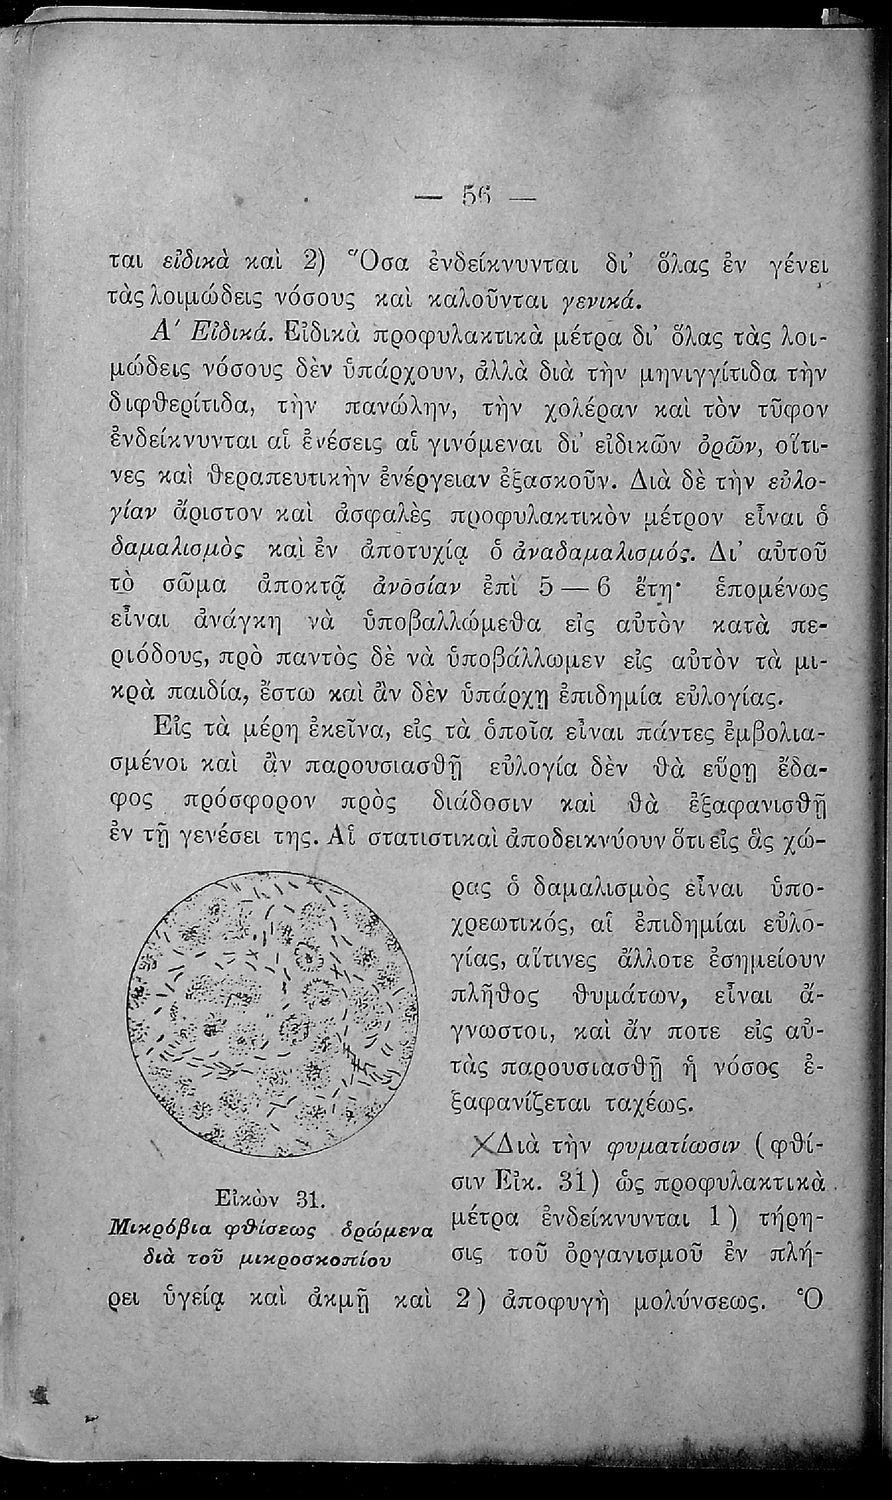 — 56 —
ται εἰδικὰ καὶ 2) Ὅσα ἐνδείκνυνται δι' ὅλας ἐν γένει
τὰς λοιμώδεις νόσους καὶ καλοῦνται γενικά.
Α' Εἰδικά. Εἰδικὰ προφυλακτικὰ μέτρα δι' ὅλας τὰς λοι-
μώδεις νόσους δὲν ὑπάρχουν, ἀλλὰ διὰ τὴν μηνιγγίτιδα τὴν
διφθερίτιδα, τὴν πανώλην, τὴν χολέραν καὶ τὸν τῦφον
ἐνδείκνυνται αἱ ἐνέσεις αἱ γινόμεναι δι' εἰδικῶν ὀρῶν, οἵτι-
νες καὶ θεραπευτικὴν ἐνέργειαν ἐξασκοῦν. Διὰ δὲ τὴν εὐλο-
γίαν ἄριστον καὶ ἀσφαλὲς προφυλακτικὸν μέτρον εἶναι ὁ
δαμαλισμὸς καὶ ἐν ἀποτυχίᾳ ὁ ἀναδαμαλισμός. Δι' αὐτοῦ
τὸ σῶμα ἀποκτᾷ ἀνοσίαν ἐπὶ 5 — 6 ἔτη· ἑπομένως
εἶναι ἀνάγκη νὰ ὑποβαλλώμεθα εἰς αὐτὸν κατὰ πε-
ριόδους, πρὸ παντὸς δὲ νὰ ὑποβάλλωμεν εἰς αὐτὸν τὰ μι-
κρὰ παιδία, ἔστω καὶ ἂν δὲν ὑπάρχῃ ἐπιδημία εὐλογίας.
Εἰς τὰ μέρη ἐκεῖνα, εἰς τὰ ὁποῖα εἶναι πάντες ἐμβολια-
σμένοι καὶ ἂν παρουσιασθῇ εὐλογία δὲν θὰ εὕρῃ ἔδα-
φος πρόσφορον πρὸς διάδοσιν καὶ θὰ ἐξαφανισθῇ
ἐν τῇ γενέσει της. Αἱ στατιστικαὶ ἀποδεικνύουν ὅτι εἰς ἃς χώ-
ρας ὁ δαμαλισμὸς εἶναι ὑπο-
χρεωτικός, αἱ ἐπιδημίαι εὐλο-
γίας, αἵτινες ἄλλοτε ἐσημείουν
πλῆθος θυμάτων, εἶναι ἄ-
γνωστοι, καὶ ἄν ποτε εἰς αὐ-
τὰς παρουσιασθῇ ἡ νόσος ἐ-
ξαφανίζεται ταχέως.
Διὰ τὴν φυματίωσιν (φθί-
σιν Εἰκ. 31) ὡς προφυλακτικὰ
μέτρα ἐνδείκνυνται 1) τήρη-
σις τοῦ ὀργανισμοῦ ἐν πλή-
Εἰκὼν 31.
Μικρόβια φθίσεως δρώμενα
διὰ τοῦ μικροσκοπίου
ρει ὑγείᾳ καὶ ἀκμῇ καὶ 2) ἀποφυγὴ μολύνσεως. Ὁ